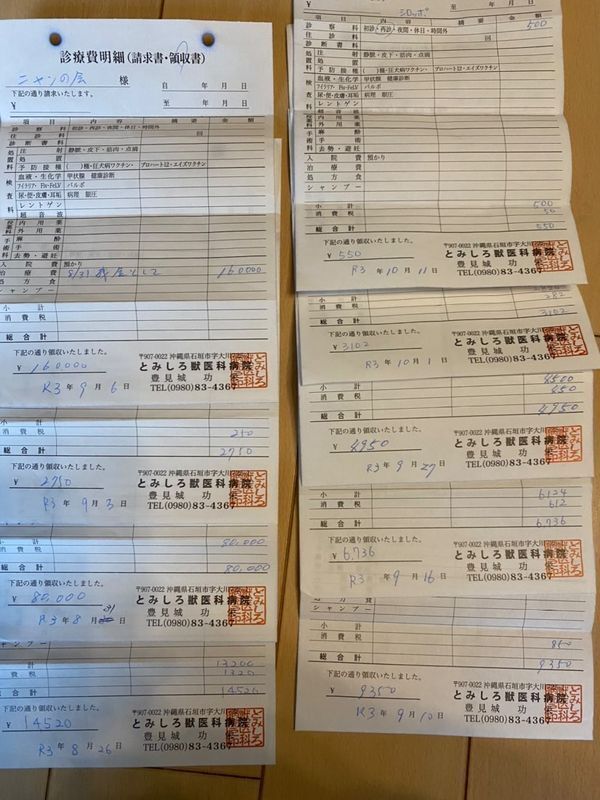 診療費明細(請求書・領収書)
ニャンの会 様
自 年 月 日
下記の通り請求いたします。
¥
至 年 月 日
項目 内容 摘要 金額
診察料 初診・再診・夜間・休日・時間外
往診料 回
診断書料
処置料 注射 静脈・皮下・筋肉・点滴
処置
予防接種 ( )種・狂犬病ワクチン・プロハート12・エイズワクチン
検査料 血液・生化学 甲状腺 健康診断
フィラリア・Fiv・FeLV パルボ
尿・便・皮膚・耳垢 病理 眼圧
レントゲン
超音波
投薬料 内用薬
外用薬
手術料 麻酔
手術
去勢・避妊
入院費 預かり
治療費 8/31残金として 160000
処方食
シャンプー
小計
消費税
総合計
下記の通り領収いたしました。
¥ 160000
R3年 9月 6日
〒907-0022 沖縄県石垣市字大川
とみしろ獣医科病院
豊見城 功 栄
TEL(0980)83-4367
小計
消費税 250
総合計 2750
下記の通り領収いたしました。
¥ 2750
R3年 9月 3日
〒907-0022 沖縄県石垣市字大川
とみしろ獣医科病院
豊見城 功 栄
TEL(0980)83-4367
小計 80,000
消費税
総合計 80,000
下記の通り領収いたしました。
¥ 80,000
R3年 8月 31日
〒907-0022 沖縄県石垣市字大川
とみしろ獣医科病院
豊見城 功 栄
TEL(0980)83-4367
シャンプー
小計 13200
消費税 1320
総合計 14520
下記の通り領収いたしました。
¥ 14520
R3年 8月 26日
〒907-0022 沖縄県石垣市字大川
とみしろ獣医科病院
豊見城 功 栄
TEL(0980)83-4367
至 年 月 日
項目 内容 摘要 金額
診察料 初診・再診・夜間・休日・時間外 500
往診料 回
診断書料
注射 静脈・皮下・筋肉・点滴
処置
予防接種 ( )種・狂犬病ワクチン・プロハート12・エイズワクチン
血液・生化学 甲状腺 健康診断
フィラリア・Fiv・FeLV パルボ
尿・便・皮膚・耳垢 病理 眼圧
レントゲン
超音波
内用薬
外用薬
麻酔
手術
去勢・避妊
入院費 預かり
治療費
処方食
シャンプー
小計 500
消費税 50
総合計 550
下記の通り領収いたしました。
¥ 550
R3年 10月 11日
〒907-0022 沖縄県石垣市字大川
とみしろ獣医科病院
豊見城 功 栄
TEL(0980)83-4367
小計
消費税 282
総合計 3102
下記の通り領収いたしました。
¥ 3102
R3年 10月 1日
〒907-0022 沖縄県石垣市字大川
とみしろ獣医科病院
豊見城 功 栄
TEL(0980)83-4367
小計 4500
消費税 450
総合計 4950
下記の通り領収いたしました。
¥ 4950
R3年 9月 27日
〒907-0022 沖縄県石垣市字大川
とみしろ獣医科病院
豊見城 功 栄
TEL(0980)83-4367
小計 6124
消費税 612
総合計 6,736
下記の通り領収いたしました。
¥ 6,736
R3年 9月 16日
〒907-0022 沖縄県石垣市字大川
とみしろ獣医科病院
豊見城 功 栄
TEL(0980)83-4367
シャンプー
小計
消費税 850
総合計 9350
下記の通り領収いたしました。
¥ 9350
R3年 9月 10日
〒907-0022 沖縄県石垣市字大川
とみしろ獣医科病院
豊見城 功 栄
TEL(0980)83-4367